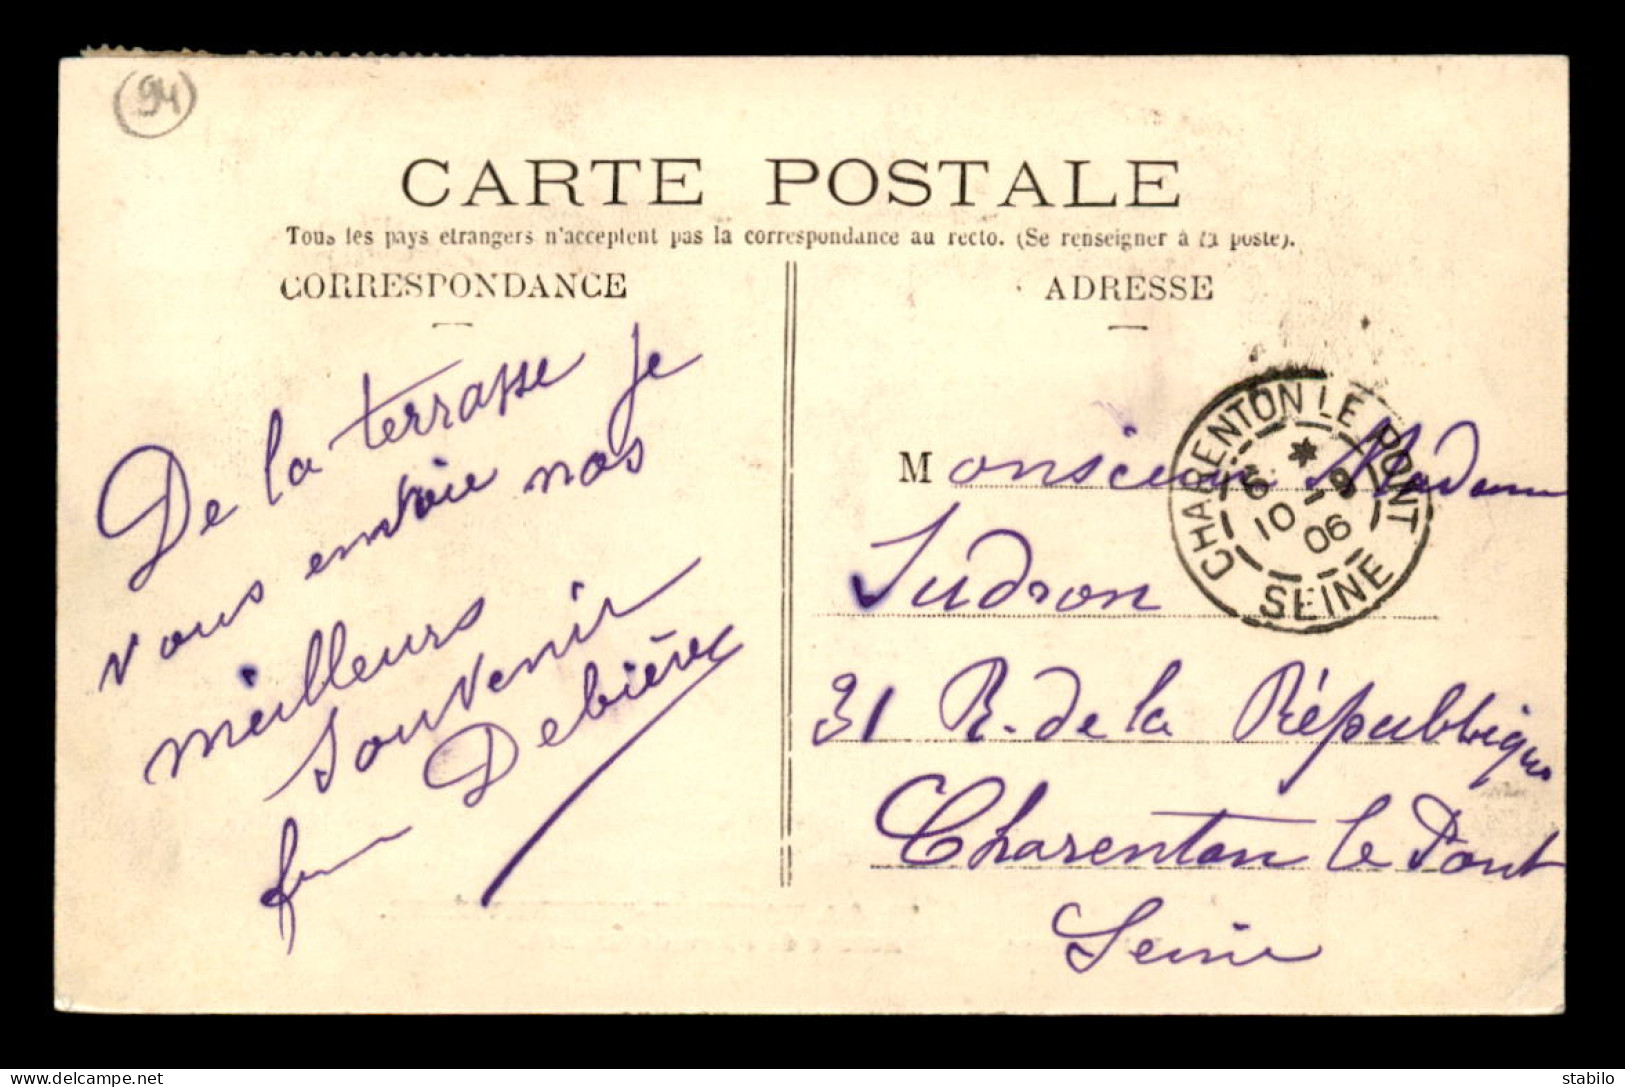 94
CARTE POSTALE
Tous les pays etrangers n'acceptent pas la correspondance au recto. (Se renseigner à la poste).
CORRESPONDANCE
De la terrasse je
vous envoie nos
meilleurs
souvenir
Debière
ADRESSE
Monsieur Madame
Judron
31 R. de la République
Charenton le Pont
Seine
CHARENTON LE PONT
6 * 9
10 - 06
SEINE
delcampe.net
stabilo